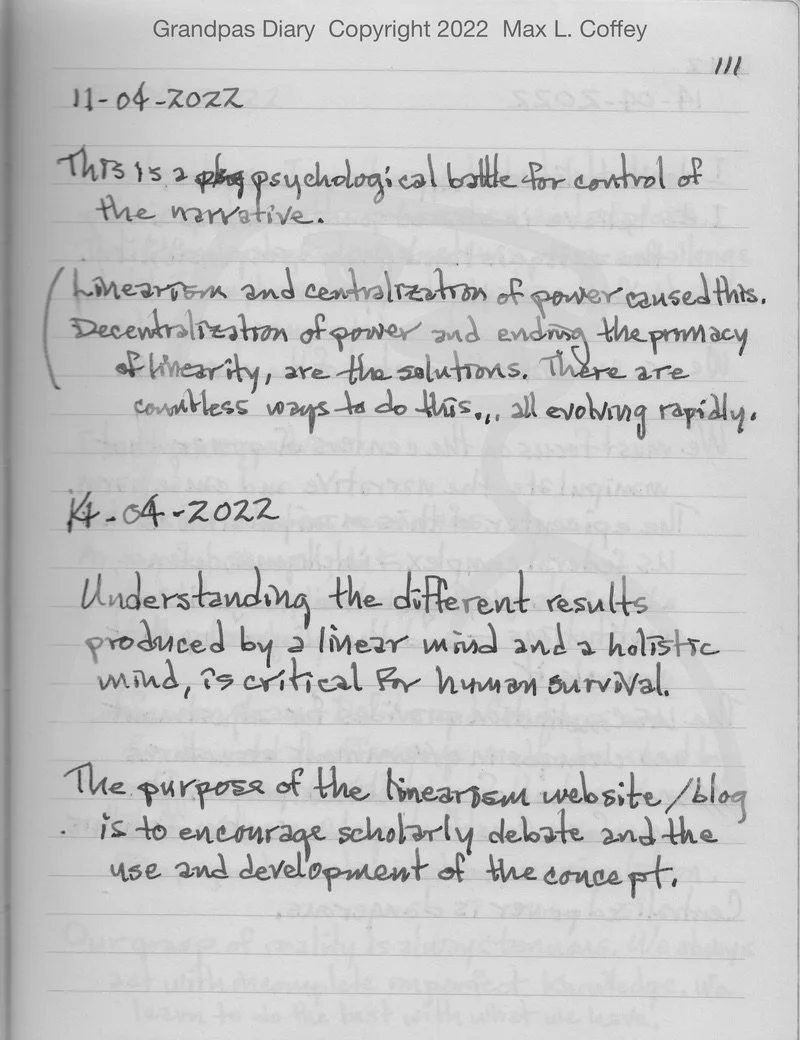 Grandpas Diary Copyright 2022 Max L. Coffey
111
11-04-2022
This is a psychological battle for control of
the narrative.
Linearism and centralization of power caused this.
Decentralization of power and ending the primacy
of linearity, are the solutions. There are
countless ways to do this... all evolving rapidly.
14-04-2022
Understanding the different results
produced by a linear mind and a holistic
mind, is critical for human survival.
The purpose of the linearism website/blog
is to encourage scholarly debate and the
use and development of the concept.